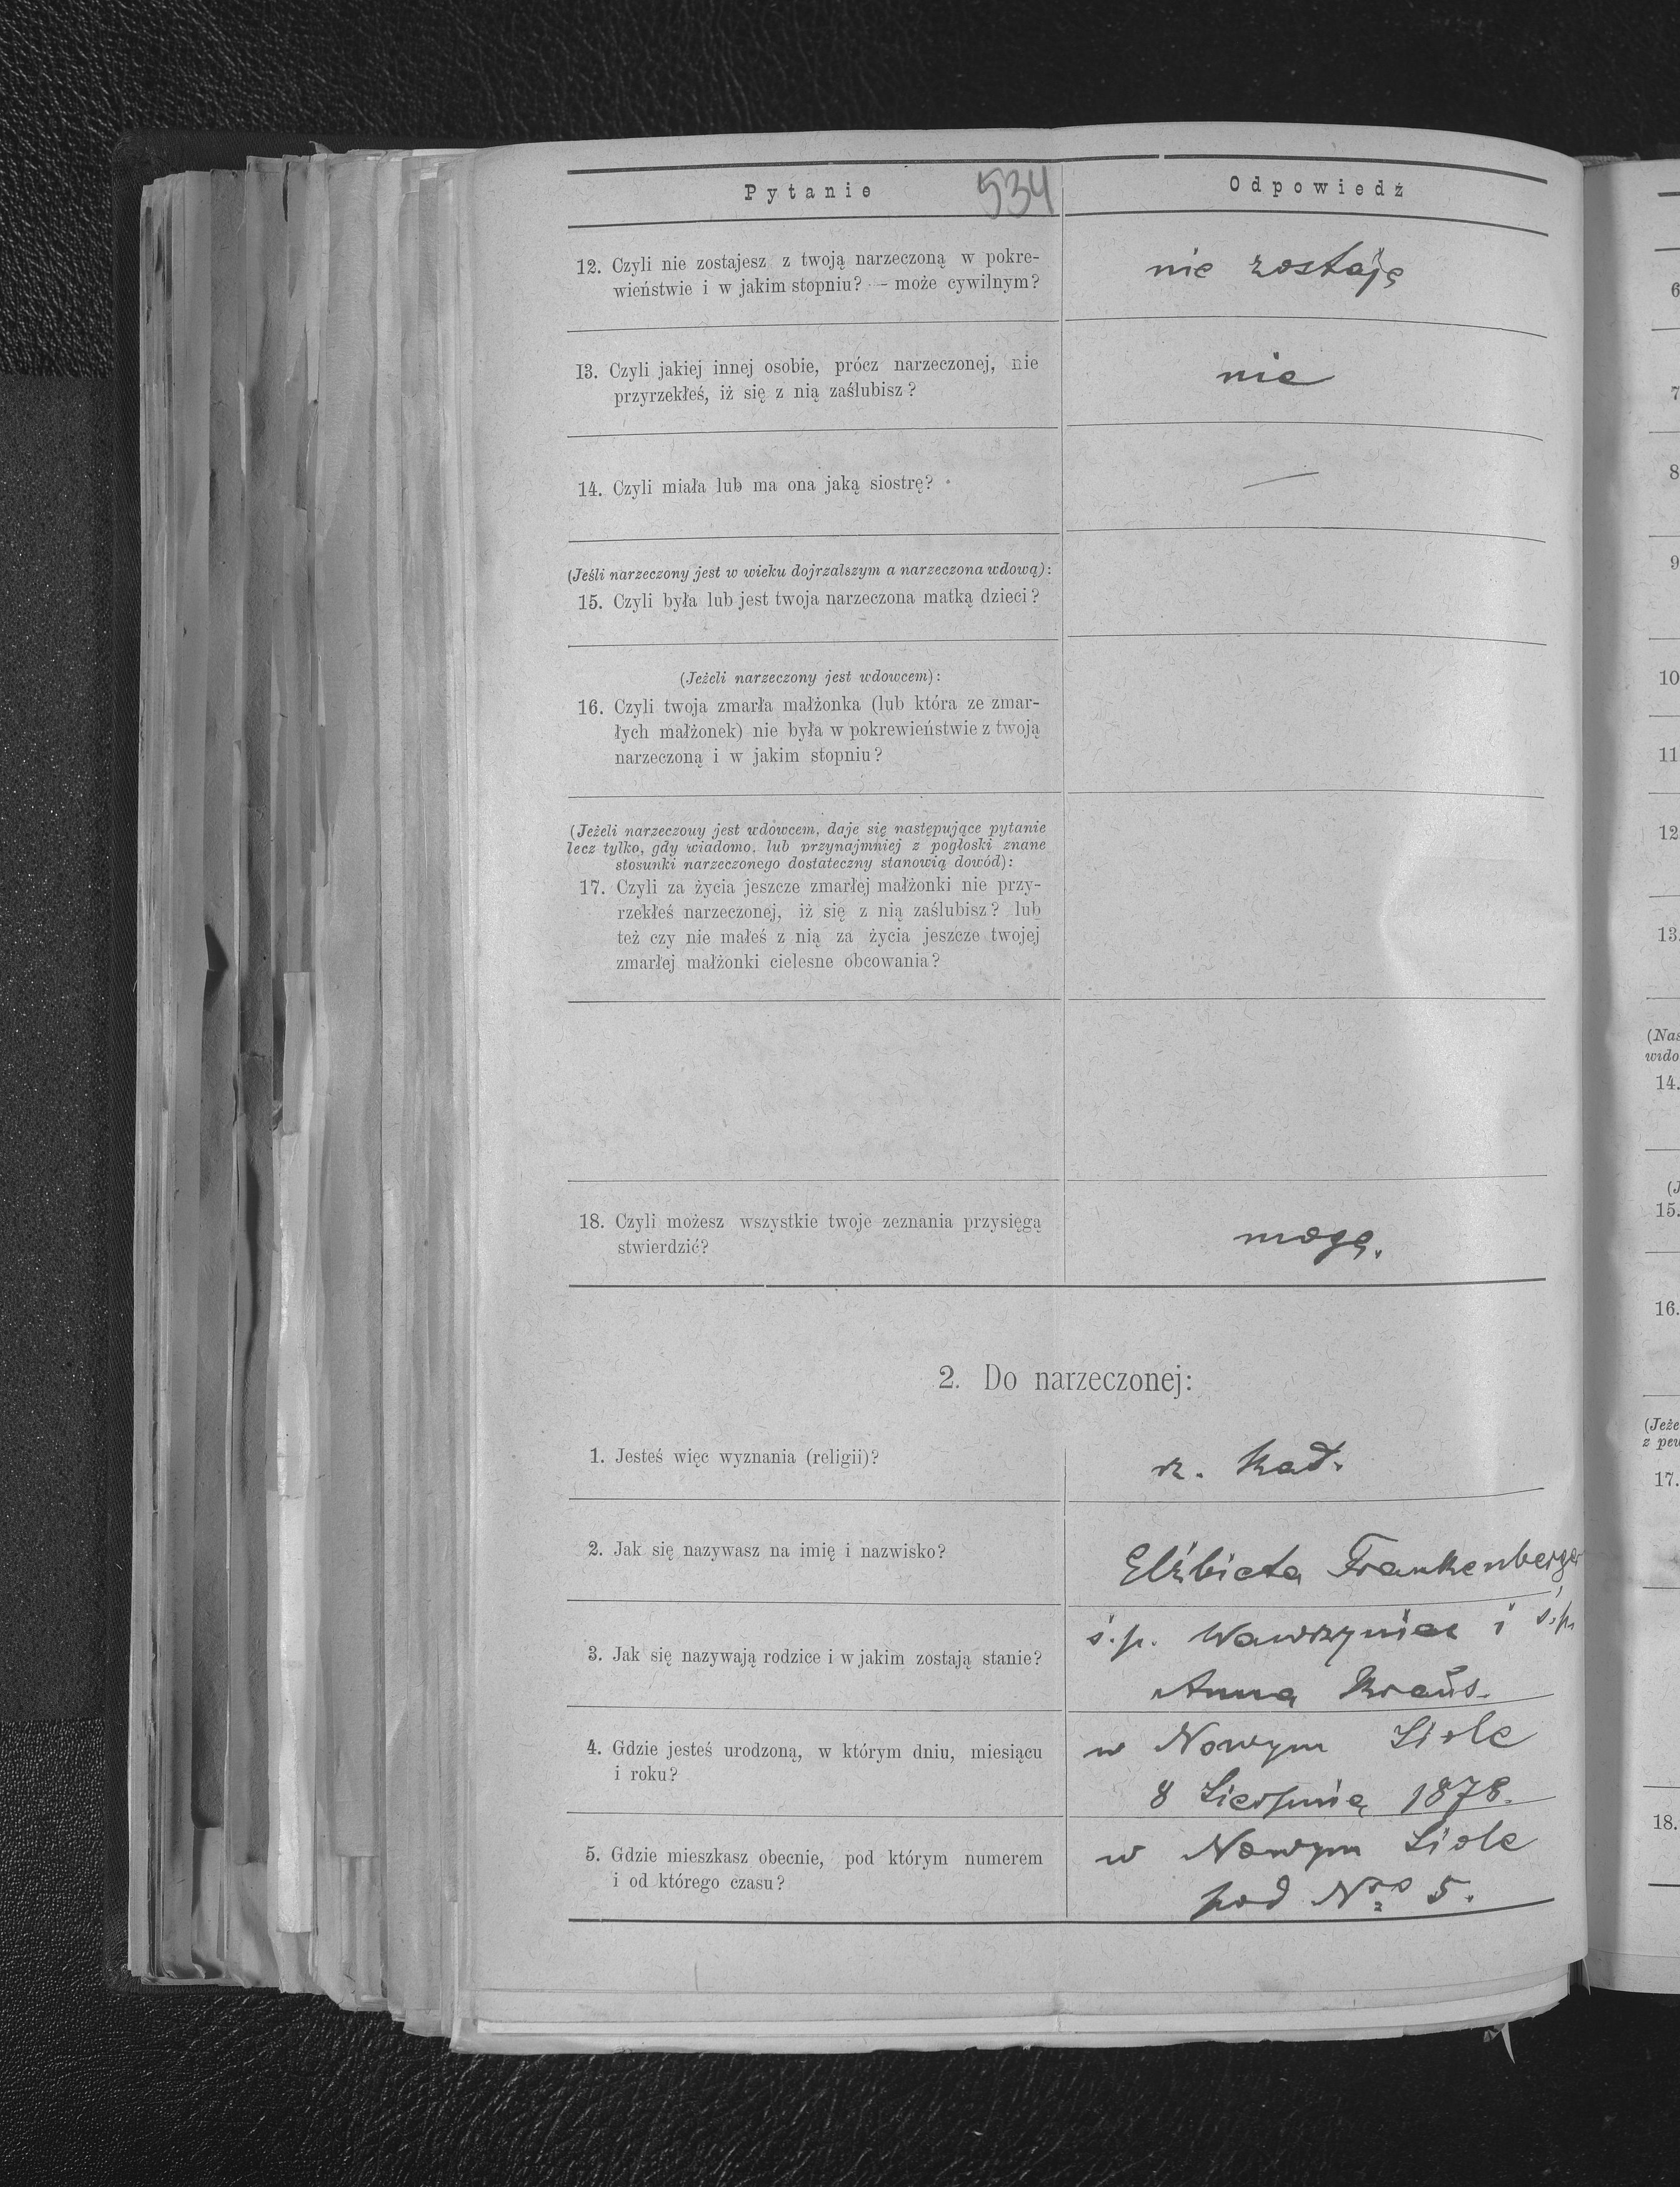 Pytanie 534 Odpowiedź
12. Czyli nie zostajesz z twoją narzeczoną w pokre-
wieństwie i w jakim stopniu? — może cywilnym?
nie zostaję
13. Czyli jakiej innej osobie, prócz narzeczonej, nie
przyrzekłeś, iż się z nią zaślubisz?
nie
14. Czyli miała lub ma ona jaką siostrę?
—
(Jeśli narzeczony jest w wieku dojrzalszym a narzeczona wdową):
15. Czyli była lub jest twoja narzeczona matką dzieci?
(Jeżeli narzeczony jest wdowcem):
16. Czyli twoja zmarła małżonka (lub która ze zmar-
łych małżonek) nie była w pokrewieństwie z twoją
narzeczoną i w jakim stopniu?
(Jeżeli narzeczouy jest wdowcem, daje się następujące pytanie
lecz tylko, gdy wiadomo, lub przynajmniej z pogłoski znane
stosunki narzeczonego dostateczny stanowią dowód):
17. Czyli za życia jeszcze zmarłej małżonki nie przy-
rzekłeś narzeczonej, iż się z nią zaślubisz? lub
też czy nie małeś z nią za życia jeszcze twojej
zmarłej małżonki cielesne obcowania?
18. Czyli możesz wszystkie twoje zeznania przysięgą
stwierdzić?
mogę.
2. Do narzeczonej:
1. Jesteś więc wyznania (religii)?
rz. kat.
2. Jak się nazywasz na imię i nazwisko?
Elżbieta Frankenberger
3. Jak się nazywają rodzice i w jakim zostają stanie?
ś.p. Wawrzyniec i ś.p.
Anna Kraus.
4. Gdzie jesteś urodzoną, w którym dniu, miesiącu
i roku?
w Nowym Siole
8 Sierpnia 1878.
5. Gdzie mieszkasz obecnie, pod którym numerem
i od którego czasu?
w Nowym Siole
pod Nro 5.
6
7
8
9
10
11
12
13.
(Nas
wido
14.
(J
15.
16.
(Jeże
z pew
17.
18.